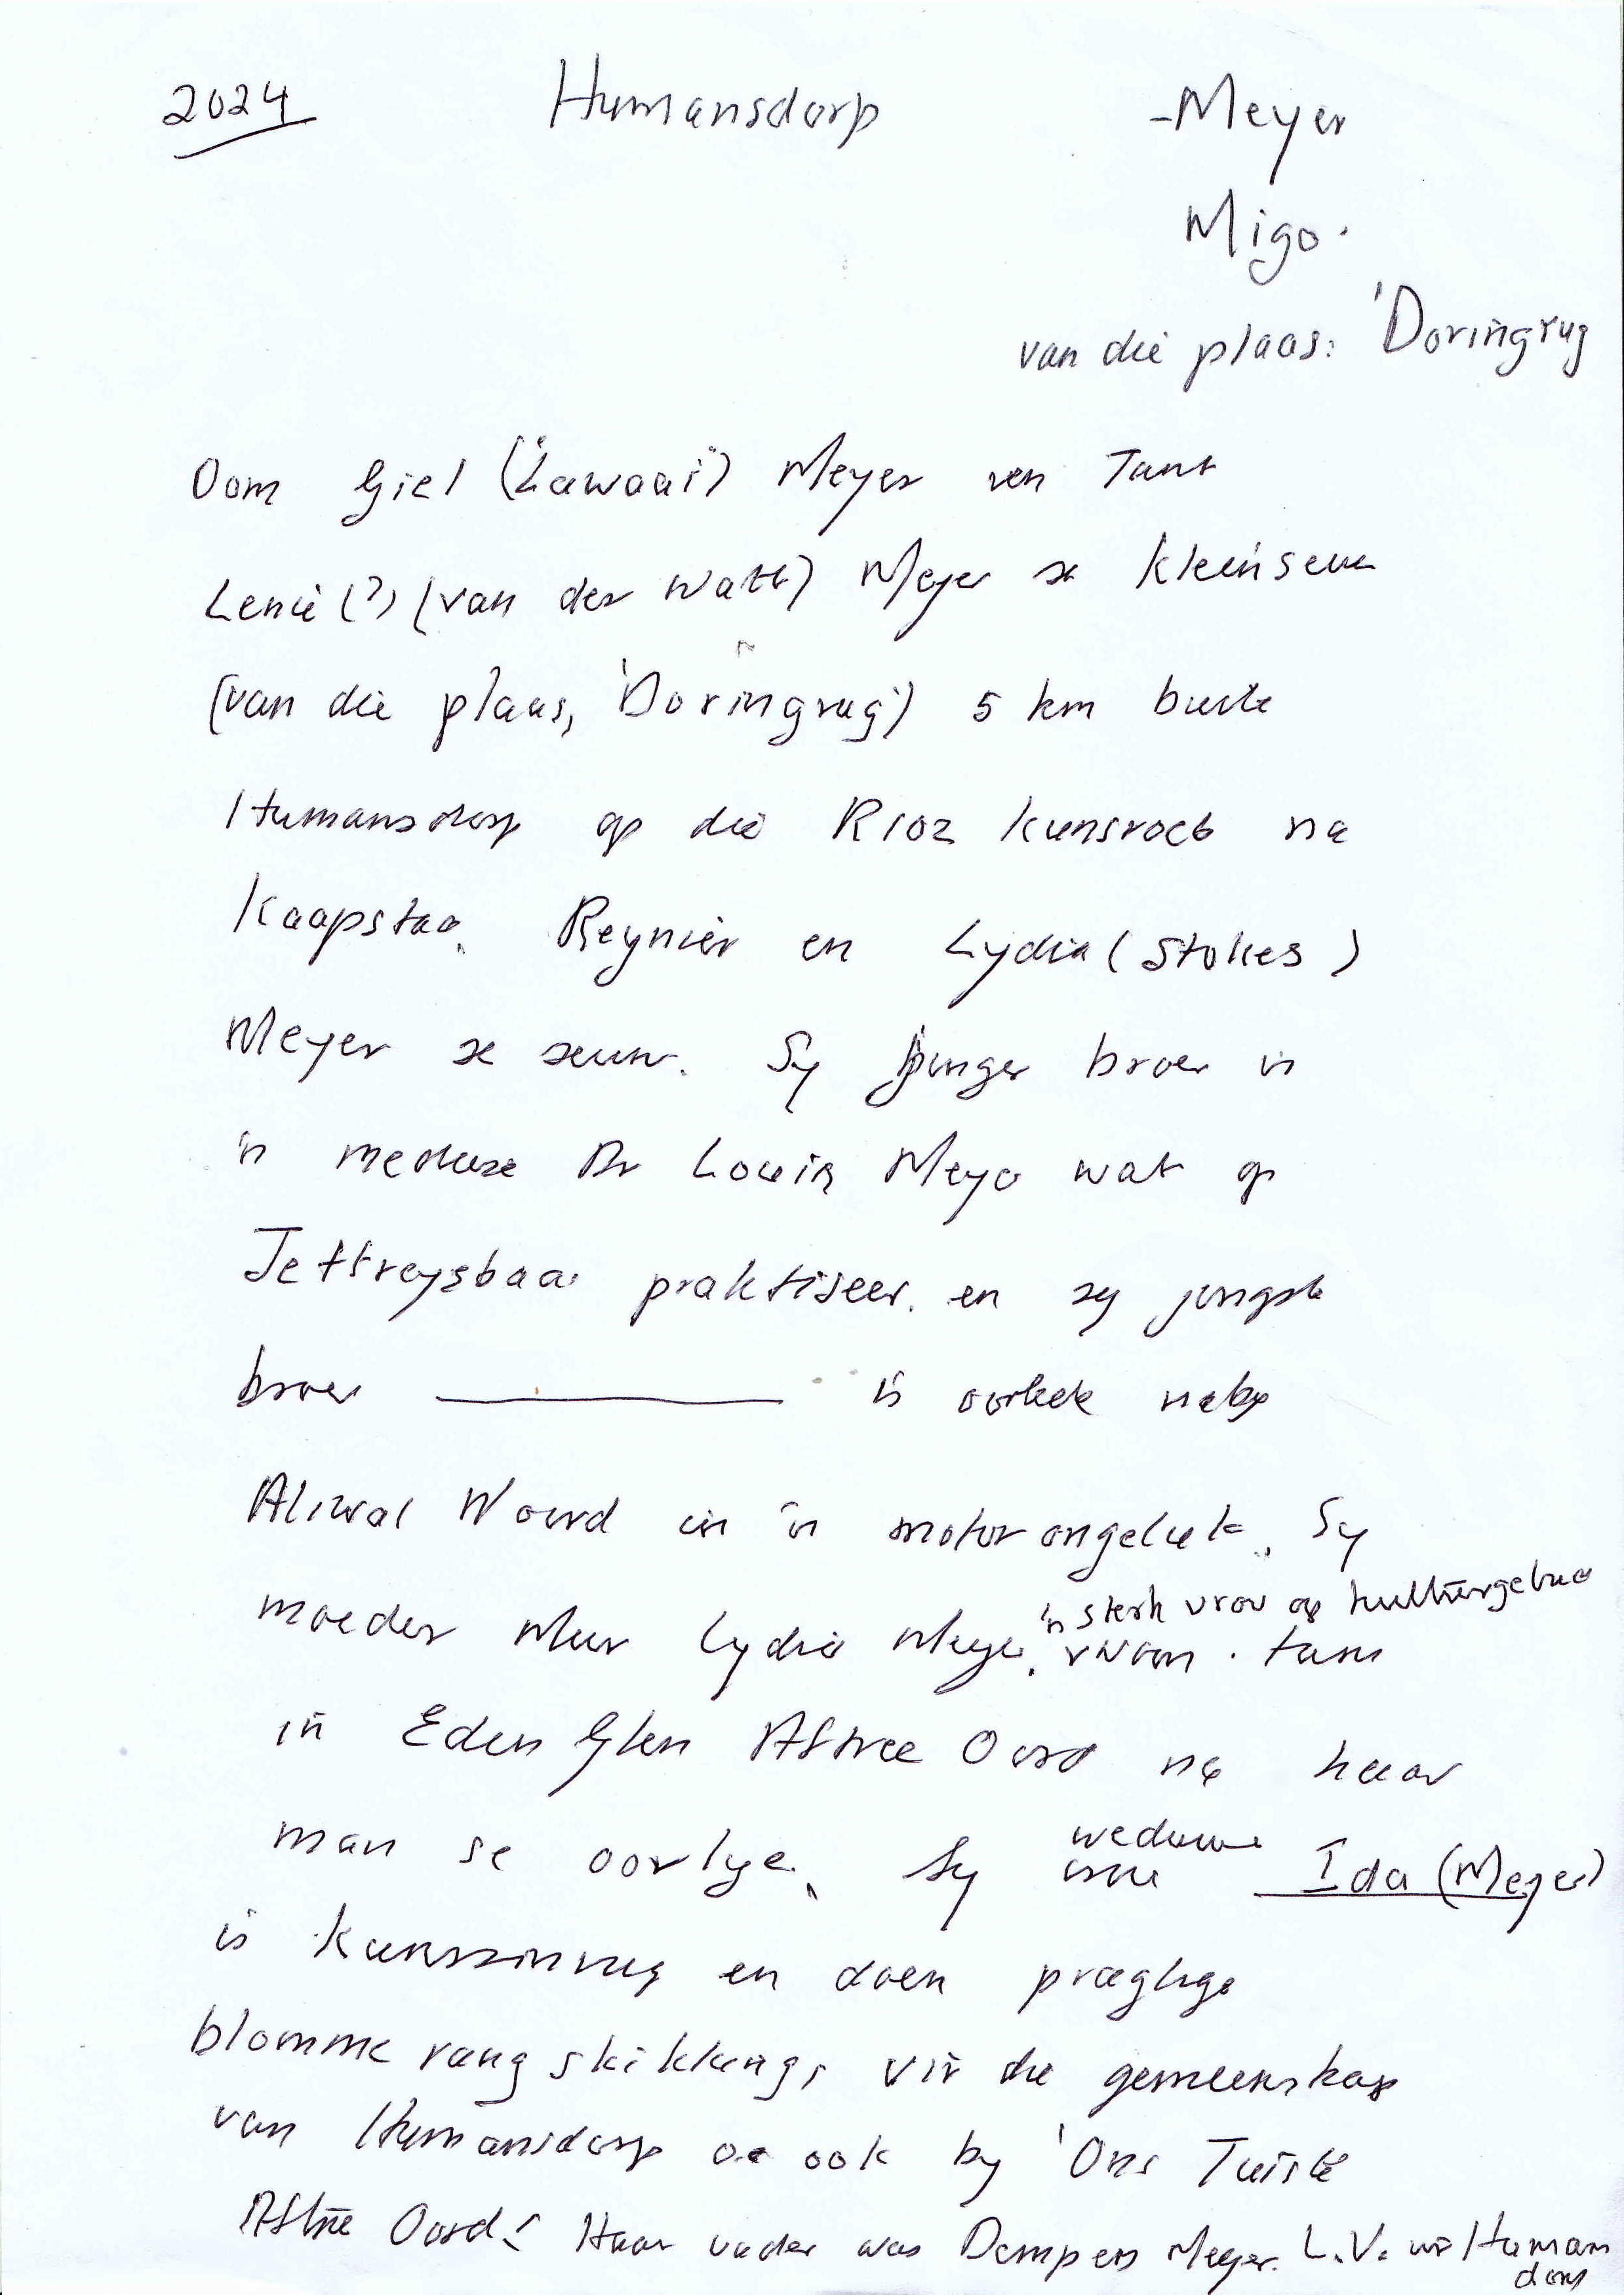 2024 Humansdorp -Meyer
Migo.
van die plaas: 'Doringrug
Oom Giel ("Lawaai") Meyer en Tant
Lenie (?) (van der Watt) Meyer se kleinseun
(van die plaas, 'Doringrug') 5 km buite
Humansdorp op die R102 kunsroete na
Kaapstad. Reynier en Lydia (Stokes)
Meyer se seun. Sy jonger broer is
'n mediese Dr Louis Meyer wat op
Jeffreysbaai praktiseer. en sy jongste
broer is oorlede naby
Aliwal Noord in 'n motorongeluk. Sy
'n sterk vrou op kultuurgebied
moeder Mev Lydia Meyer, woon tans
in Eden Glen Aftree Oord na haar
man se oorlye. Sy weduwee Ida (Meyer)
is kunssinnig en doen pragtige
blomme rangskikkings vir die gemeenskap
van Humansdorp ook by 'Ons Tuiste
Aftree Oord! Haar vader was Dempers Meyer. L.V. vir Humans
dorp